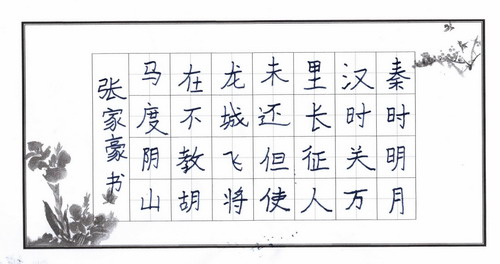 秦时明月
汉时关万
里长征人
未还但使
龙城飞将
在不教胡
马度阴山
张家豪书